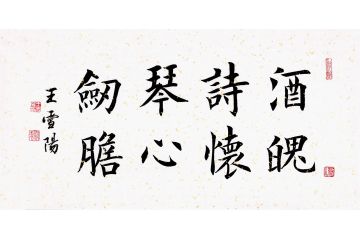 酒魄
詩懷
琴心
劒膽
王雪陽